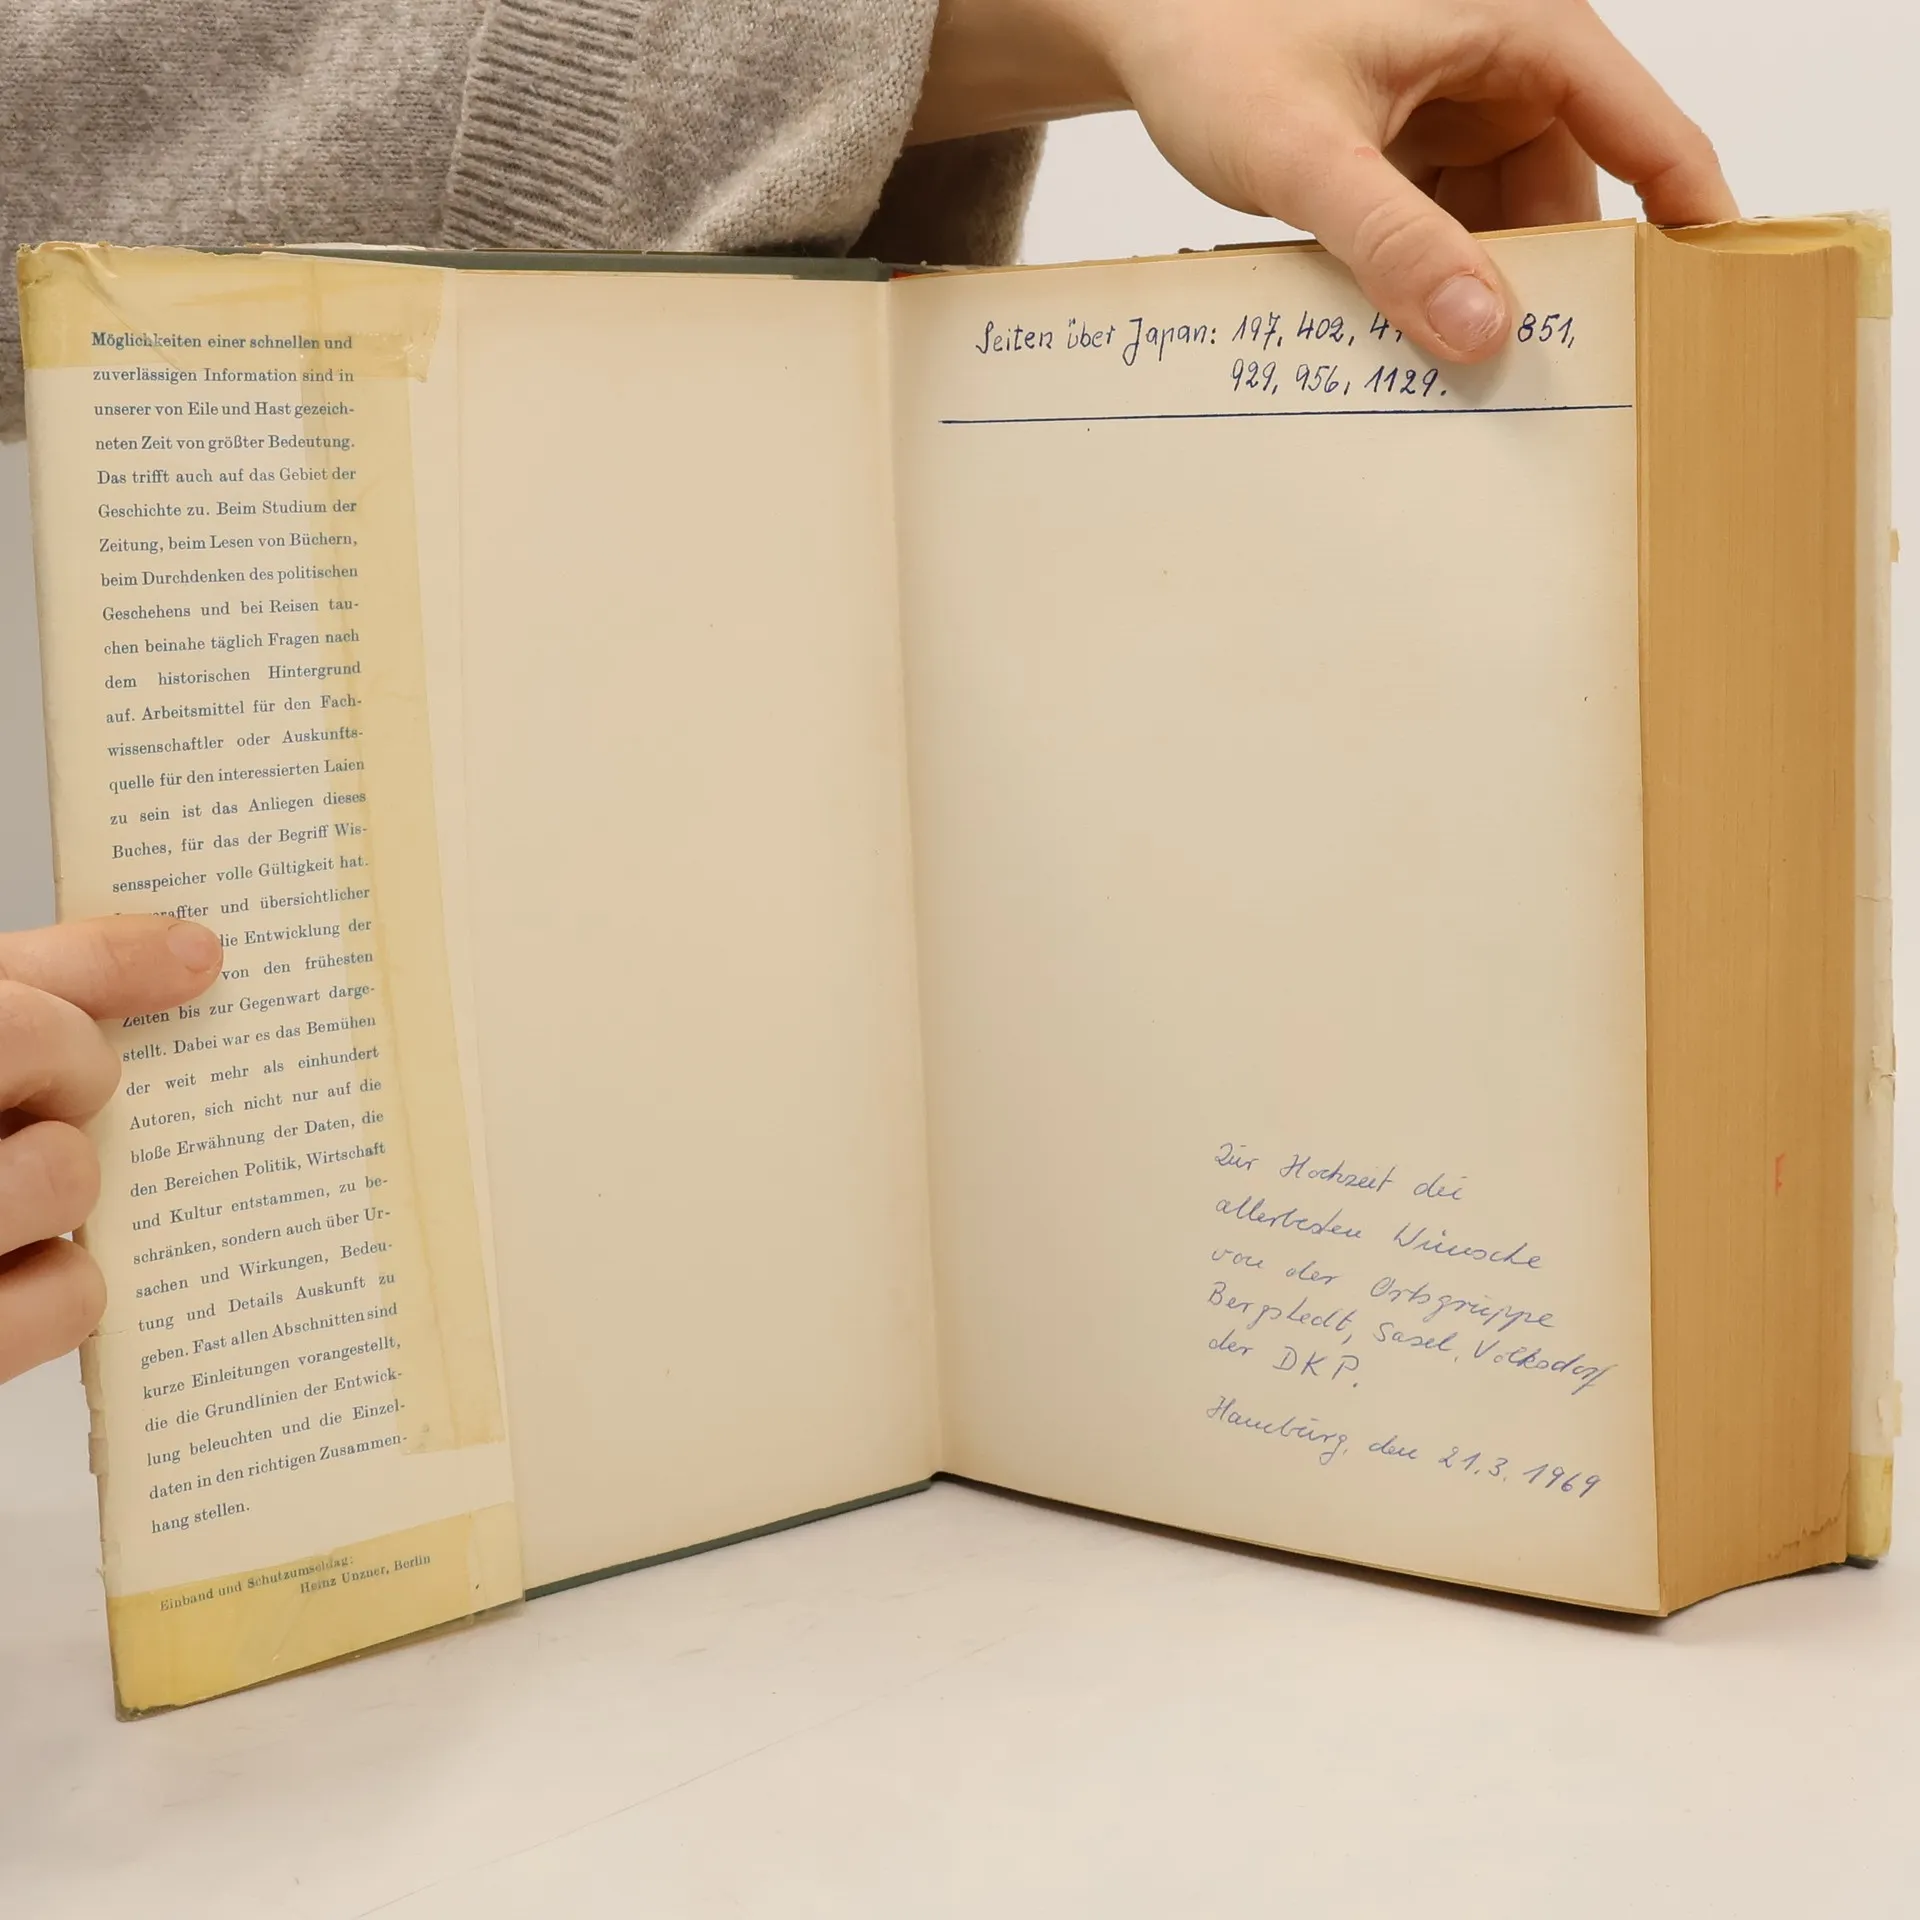 Möglichkeiten einer schnellen und
zuverlässigen Information sind in
unserer von Eile und Hast gezeich-
neten Zeit von größter Bedeutung.
Das trifft auch auf das Gebiet der
Geschichte zu. Beim Studium der
Zeitung, beim Lesen von Büchern,
beim Durchdenken des politischen
Geschehens und bei Reisen tau-
chen beinahe täglich Fragen nach
dem historischen Hintergrund
auf. Arbeitsmittel für den Fach-
wissenschaftler oder Auskunfts-
quelle für den interessierten Laien
zu sein ist das Anliegen dieses
Buches, für das der Begriff Wis-
sensspeicher volle Gültigkeit hat.
und übersichtlicher
die Entwicklung der
von den frühesten
Zeiten bis zur Gegenwart darge-
stellt. Dabei war es das Bemühen
der weit mehr als einhundert
Autoren, sich nicht nur auf die
bloße Erwähnung der Daten, die
den Bereichen Politik, Wirtschaft
und Kultur entstammen, zu be-
schränken, sondern auch über Ur-
sachen und Wirkungen, Bedeu-
tung und Details Auskunft zu
geben. Fast allen Abschnitten sind
kurze Einleitungen vorangestellt,
die die Grundlinien der Entwick-
lung beleuchten und die Einzel-
daten in den richtigen Zusammen-
hang stellen.
Einband und Schutzumschlag:
Heinz Unzner, Berlin
Seiten über Japan: 197, 402, 851,
929, 956, 1129.
Zur Hochzeit die
allerbesten Wünsche
von der Ortsgruppe
Bergstedt, Sasel, Volksdorf
der DKP.
Hamburg, den 21.3.1969